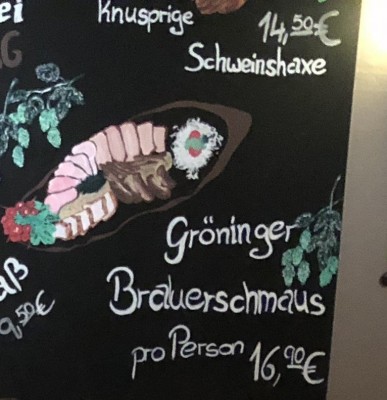 ei
Knusprige
14,50 €
G
Schweinshaxe
Gröninger
aß
Brauerschmaus
9,50 €
pro Person 16,90 €